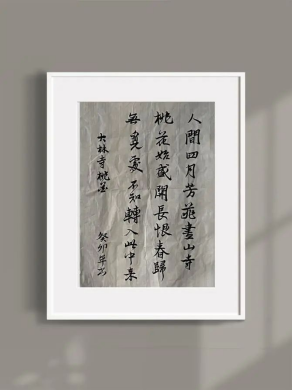 人間四月芳菲盡山寺
桃花始盛開長恨春歸
無覓處不知轉入此中來
大林寺桃花
癸卯年